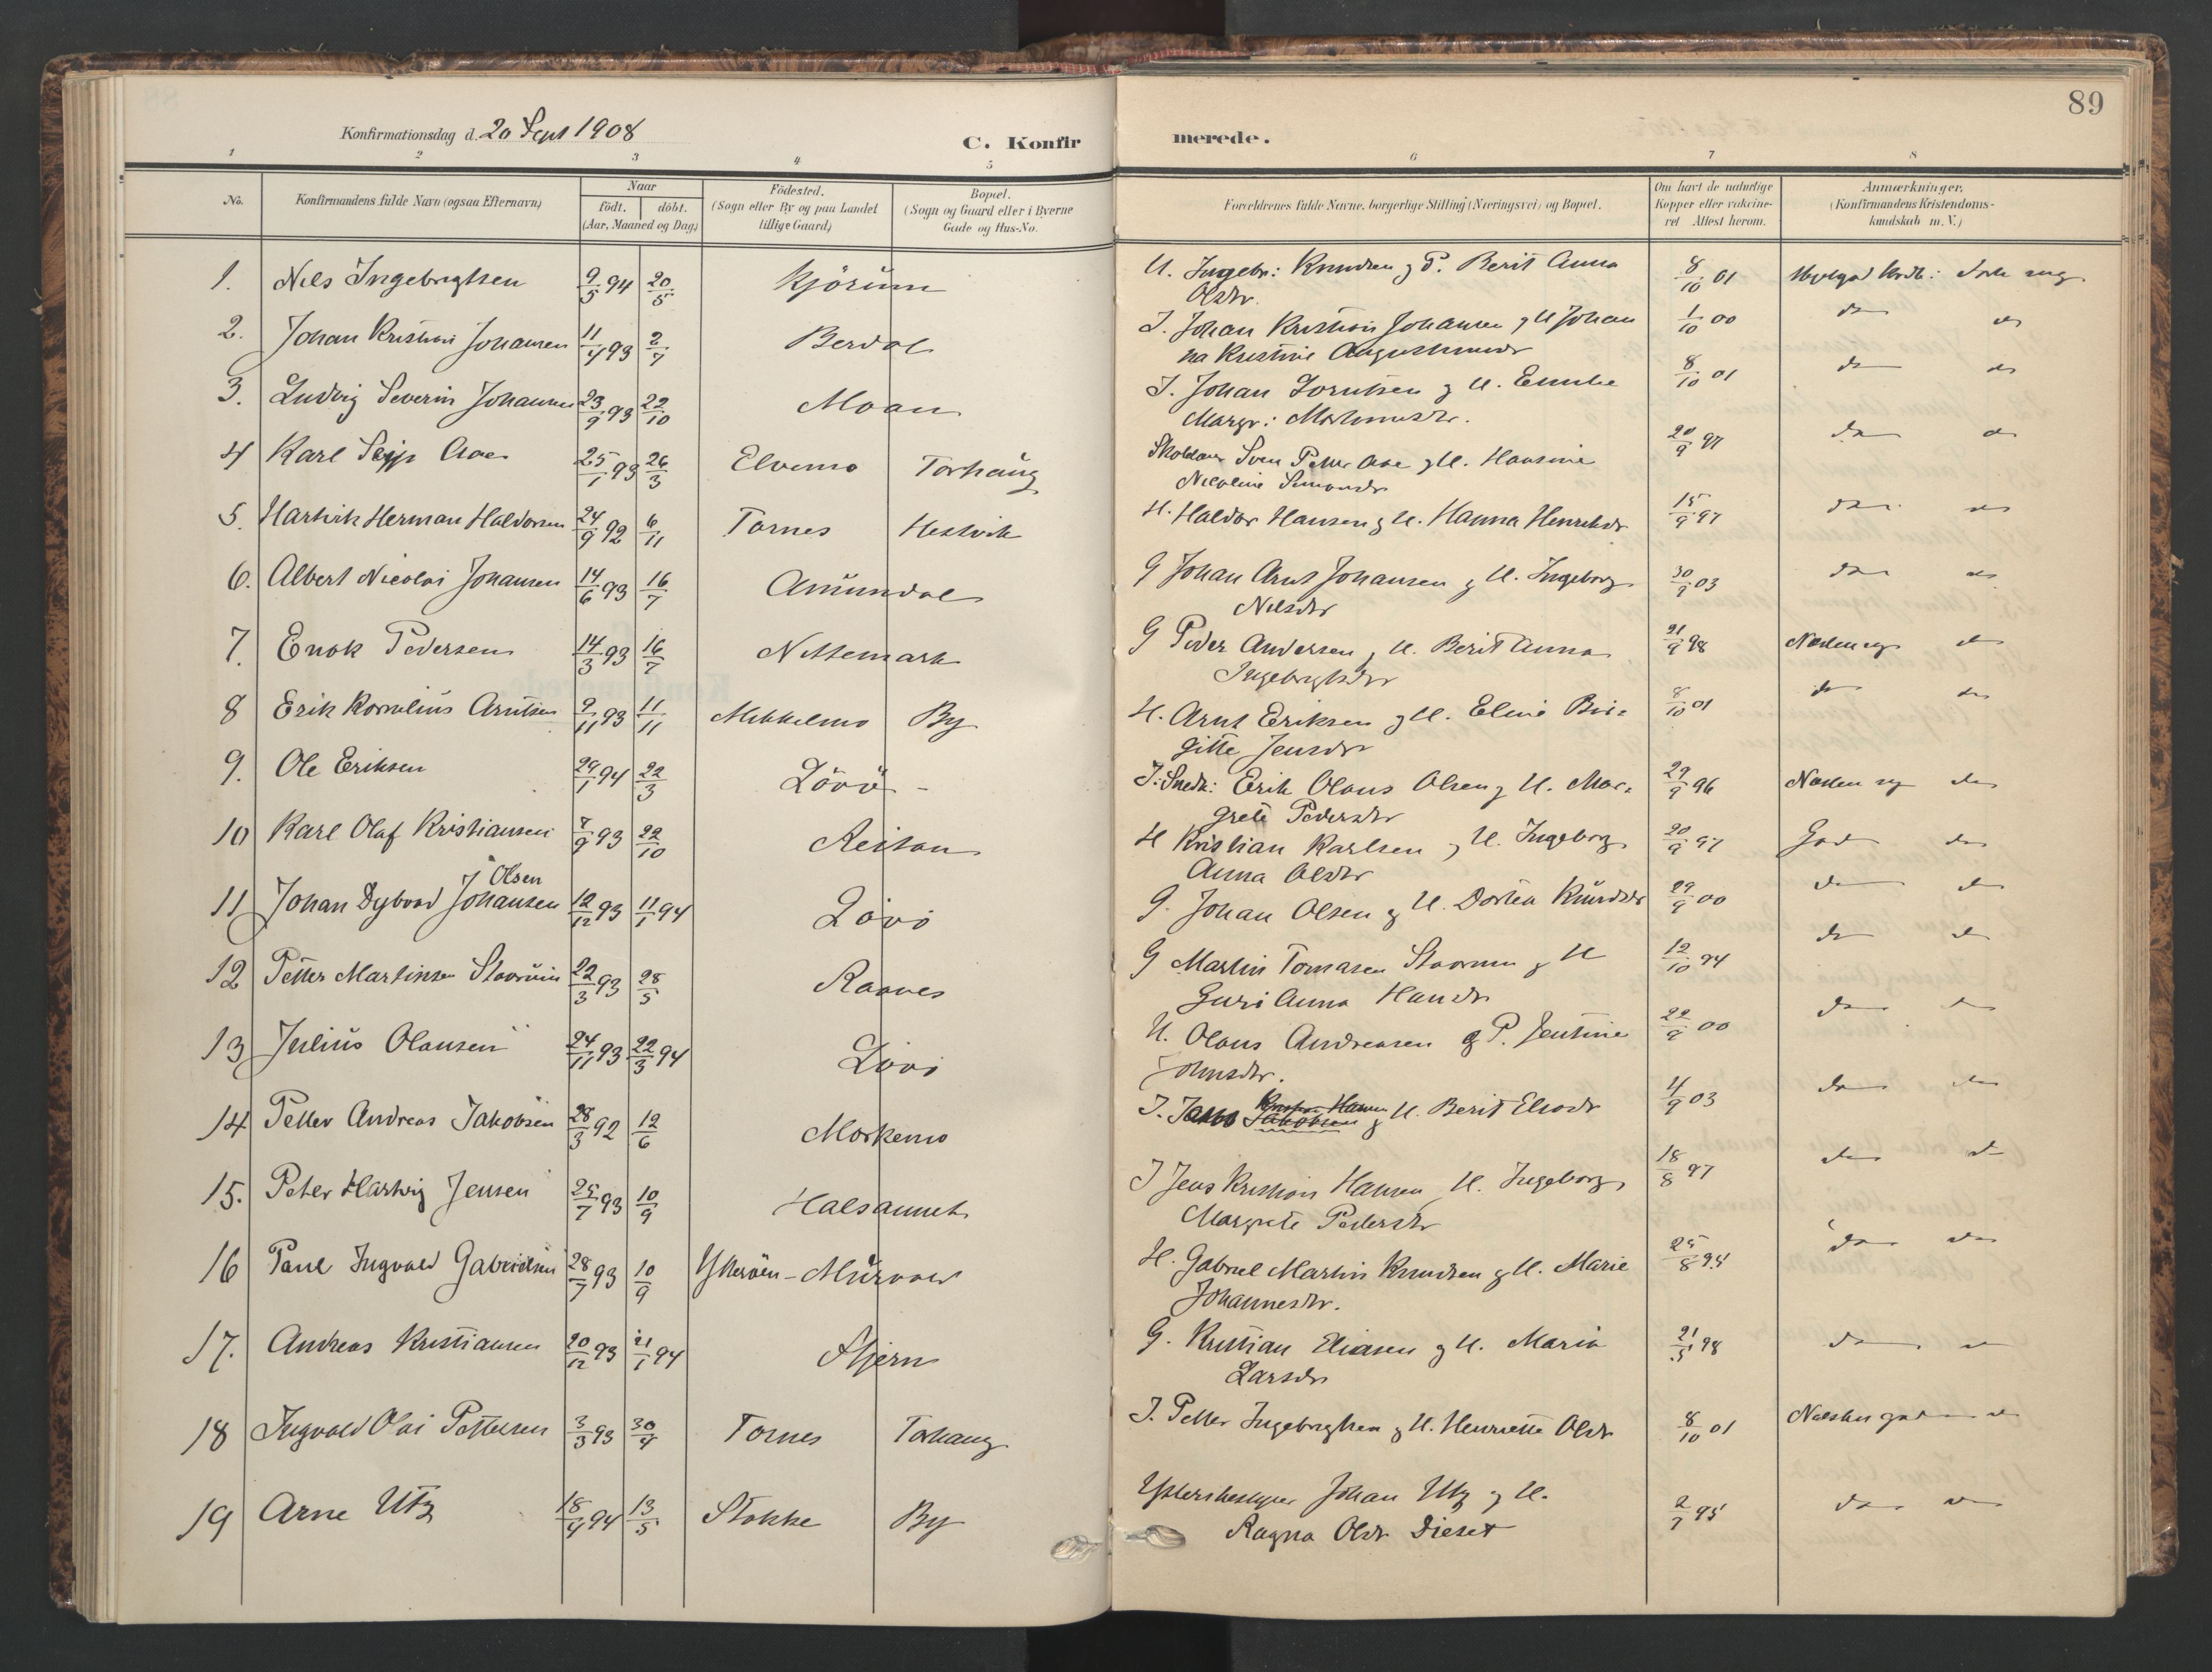 89
Konfirmationsdag d. 20 Sept 1908
C. Konfirmerede.
1 2 3 4 5 6 7 8
No. Konfirmandens fulde Navn (ogsaa Efternavn) Naar født. døbt. (Aar, Maaned og Dag) Fødested. (Sogn eller By og paa Landet tillige Gaard) Bopæl. (Sogn og Gaard eller i Byerne Gade og Hus-No. Forældrenes fulde Navne, borgerlige Stilling (Næringsvei) og Bopæl. Om havt de naturlige Kopper eller vaccineret Attest herom. Anmærkninger. (Konfirmandens Kristendomskundskab m. V.)
1. Nils Ingebrigtsen 9/5 94 20/5 Kjörum U. Ingebr: Knudsen g P. Berit Anna 8/10 01
Olsdr.
2. Johan Kristian Johansen 11/4 93 2/7 Berdal I. Johan Kristian Johansen g U Johan 1/10 00 do do
na Kristine Augustinusdr
3. Ludvig Severin Johansen 23/9 93 22/10 Moan I. Johan Lorntsen g U. Emelie 8/10 01 do do
Margr: Martinusdr.
4 Karl Sejp Aae 25/1 93 26/3 Elvemo Torhaug Sven Petter Aae g U. Hansine 20/9 97 do do
Nicoline Simonsdr
5. Hartvik Herman Haldorsen 24/9 92 6/11 Tornes Hestvik H. Haldor Hansen g U. Hanna Henriksdr 15/9 97 do do
6. Albert Nicolai Johansen 14/6 93 16/7 Amundal G Johan Arnt Johansen g U. Ingeborg 30/9 03 do do
Nilsdr
7. Enok Pedersen 14/3 93 16/7 Nettemark G Peder Andersen g U. Berit Anna 21/9 98 do
Ingebrigtsdr
8 Erik Kornelius Arntsen 9/11 93 11/11 Mekkelmo By H. Arnt Eriksen g U. Eline Bir= 8/10 01 do do
gitte Jensdr
9. Ole Eriksen 29/1 94 22/3 Lövö - I. Snedk: Erik Olaus Olsen g U. Mar= 29/9 96 do
grete Pedersdr
10 Karl Olaf Kristiansen 7/9 93 22/10 Reitan H Kristian Karlsen g U. Ingeborg 20/9 97 God do
Anna Olsdr
Olsen
11 Johan Dybvad Johansen 12/12 93 11/1 94 Lövö G. Johan Olsen g U. Dortea Knudsdr 29/9 00 do do
12 Petter Martinsen Stavrum 22/3 93 28/5 Raanes G Martin Tomasen Stavrum g U 12/10 94 do do
Guri Anna Hansdr
13 Julius Olausen 24/11 93 22/3 94 Lövö U. Olaus Andreasen g P. Jentine 22/9 00 do do
Johnsdr.
14 Petter Andreas Jakobsen 28/3 92 12/6 Morkemo I. Jakob Jakobsen g U. Berit Eliasdr 4/9 03 do do
15. Peter Hartvig Jensen 25/7 93 10/9 Halsaunet I Jens Kristian Hansen g U. Ingeborg 18/8 97 do do
Margrete Pedersdr
16 Paul Ingvald Gabrielsen 28/7 93 10/9 Ytterøen - Murvold H. Gabriel Martin Knudsen g U. Marie 25/8 94 do do
Johannesdr.
17. Andreas Kristiansen 20/12 93 21/1 94 Stjern G. Kristian Eliasen g U. Maria 21/5 98 do do
Larsdr
18 Ingvald Olai Pettersen 3/3 93 30/4 Tornes Torhaug I. Petter Ingebrigtsen g U. Henriette Olsdr 8/10 01
19 Arne Utz 18/4 94 13/5 Stokke By Ysteribestyrer Johan Utz g U. 2/7 95 do do
Ragna Olsdr Dieset